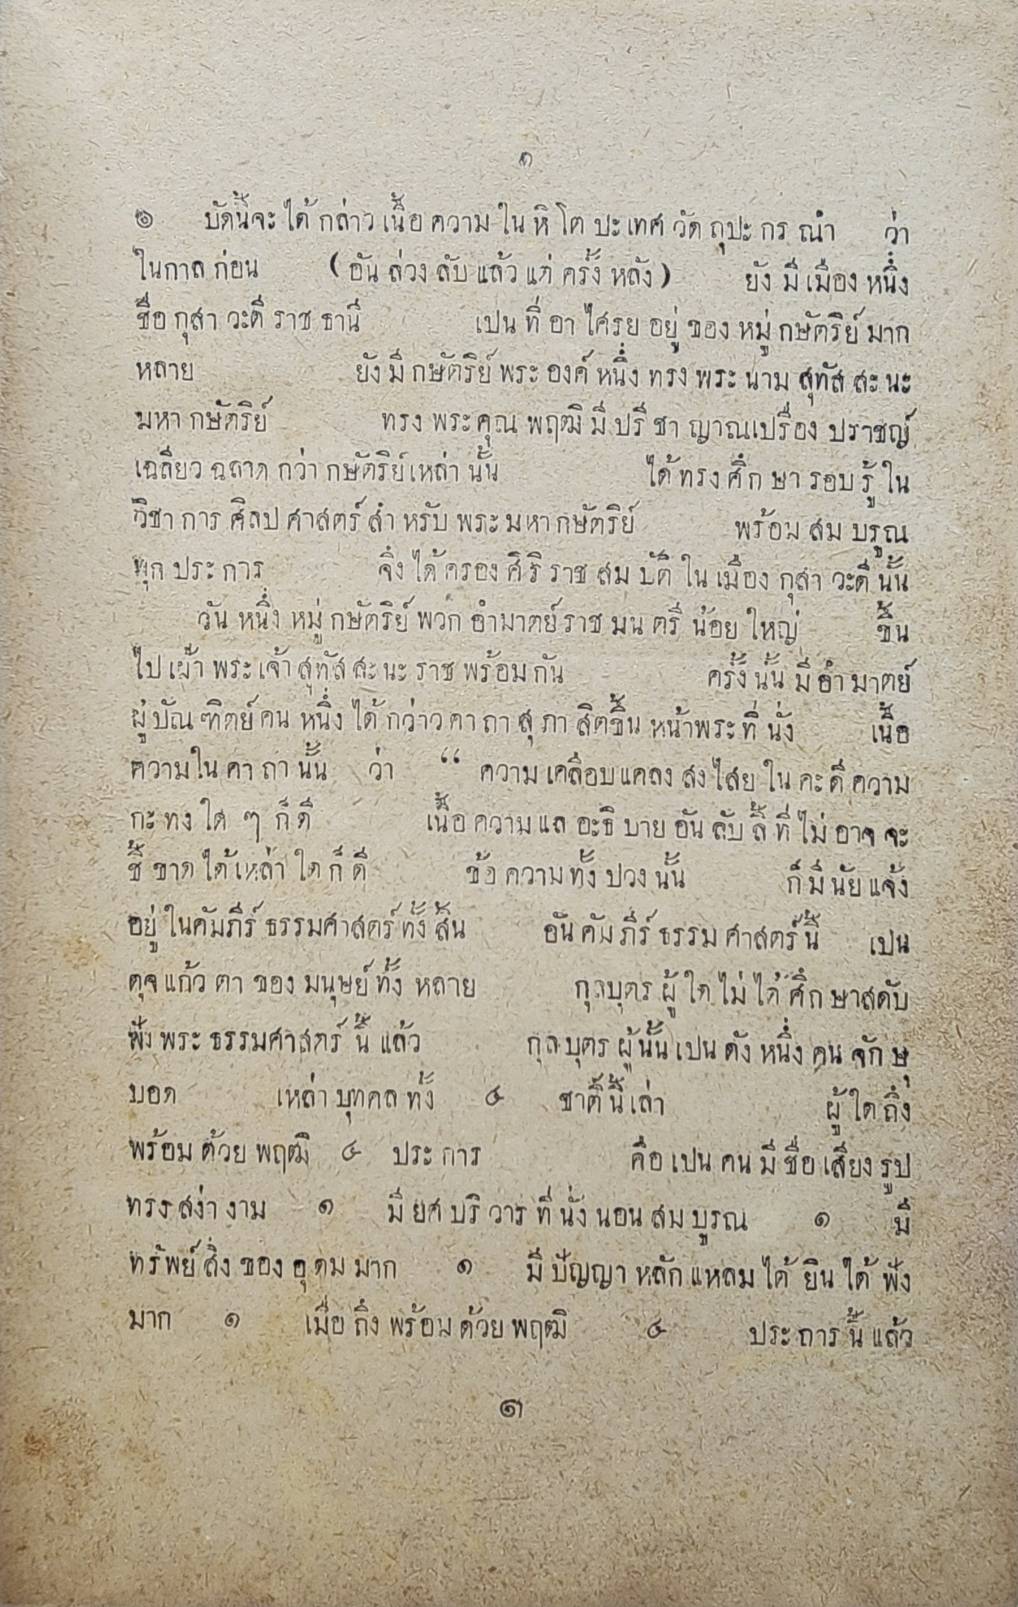 ๑
๏ บัดนี้จะได้กล่าวเนื้อความในหิโตปะเทศวัดถุปะกรณํา ว่า
ในกาลก่อน (อันล่วงลับแล้วแต่ครั้งหลัง) ยังมีเมืองหนึ่ง
ชื่อกุสาวะดีราชธานี เปนที่อาไศรยอยู่ของหมู่กษัตริย์มาก
หลาย ยังมีกษัตริย์พระองค์หนึ่งทรงพระนามสุทัสสะนะ
มหากษัตริย์ ทรงพระคุณพฤฒิมีปรีชาญาณเปรื่องปราชญ์
เฉลียวฉลาดกว่ากษัตริย์เหล่านั้น ได้ทรงศึกษารอบรู้ใน
วิชาการศิลปศาสตร์สำหรับพระมหากษัตริย์ พร้อมสมบรูณ
ทุกประการ จึ่งได้ครองศิริราชสมบัติในเมืองกุสาวะดีนั้น
วันหนึ่งหมู่กษัตริย์พวกอำมาตย์ราชมนตรีน้อยใหญ่ ขึ้น
ไปเฝ้าพระเจ้าสุทัสสะนะราชพร้อมกัน ครั้งนั้นมีอำมาตย์
ผู้บัณฑิตย์คนหนึ่งได้กว่าวคาถาสุภาสิตขึ้นหน้าพระที่นั่ง เนื้อ
ความในคาถานั้น ว่า “ ความเคลือบแคลงสงไสยในคะดีความ
กะทงใดๆก็ดี เนื้อความแลอะธิบายอันลับลี้ที่ไม่อาจจะ
ชี้ขาดได้เหล่าใดก็ดี ข้อความทั้งปวงนั้น ก็มีนัยแจ้ง
อยู่ในคัมภีร์ธรรมศาสตร์ทั้งสิ้น อันคัมภีร์ธรรมศาสตร์นี้ เปน
ดุจแก้วตาของมนุษย์ทั้งหลาย กุลบุตรผู้ใดไม่ได้ศึกษาสดับ
ฟังพระธรรมศาสตร์นี้แล้ว กุลบุตรผู้นั้นเปนดังหนึ่งคนจักษุ
บอด เหล่าบุทคลทั้ง ๔ ชาตินี้เล่า ผู้ใดถึง
พร้อมด้วยพฤฒิ ๔ ประการ คือเปนคนมีชื่อเสียงรูป
ทรงสง่างาม ๑ มียศบริวารที่นั่งนอนสมบูรณ ๑ มี
ทรัพย์สิ่งของอุดมมาก ๑ มีปัญญาหลักแหลมได้ยินได้ฟัง
มาก ๑ เมื่อถึงพร้อมด้วยพฤฒิ ๔ ประการนี้แล้ว
๑